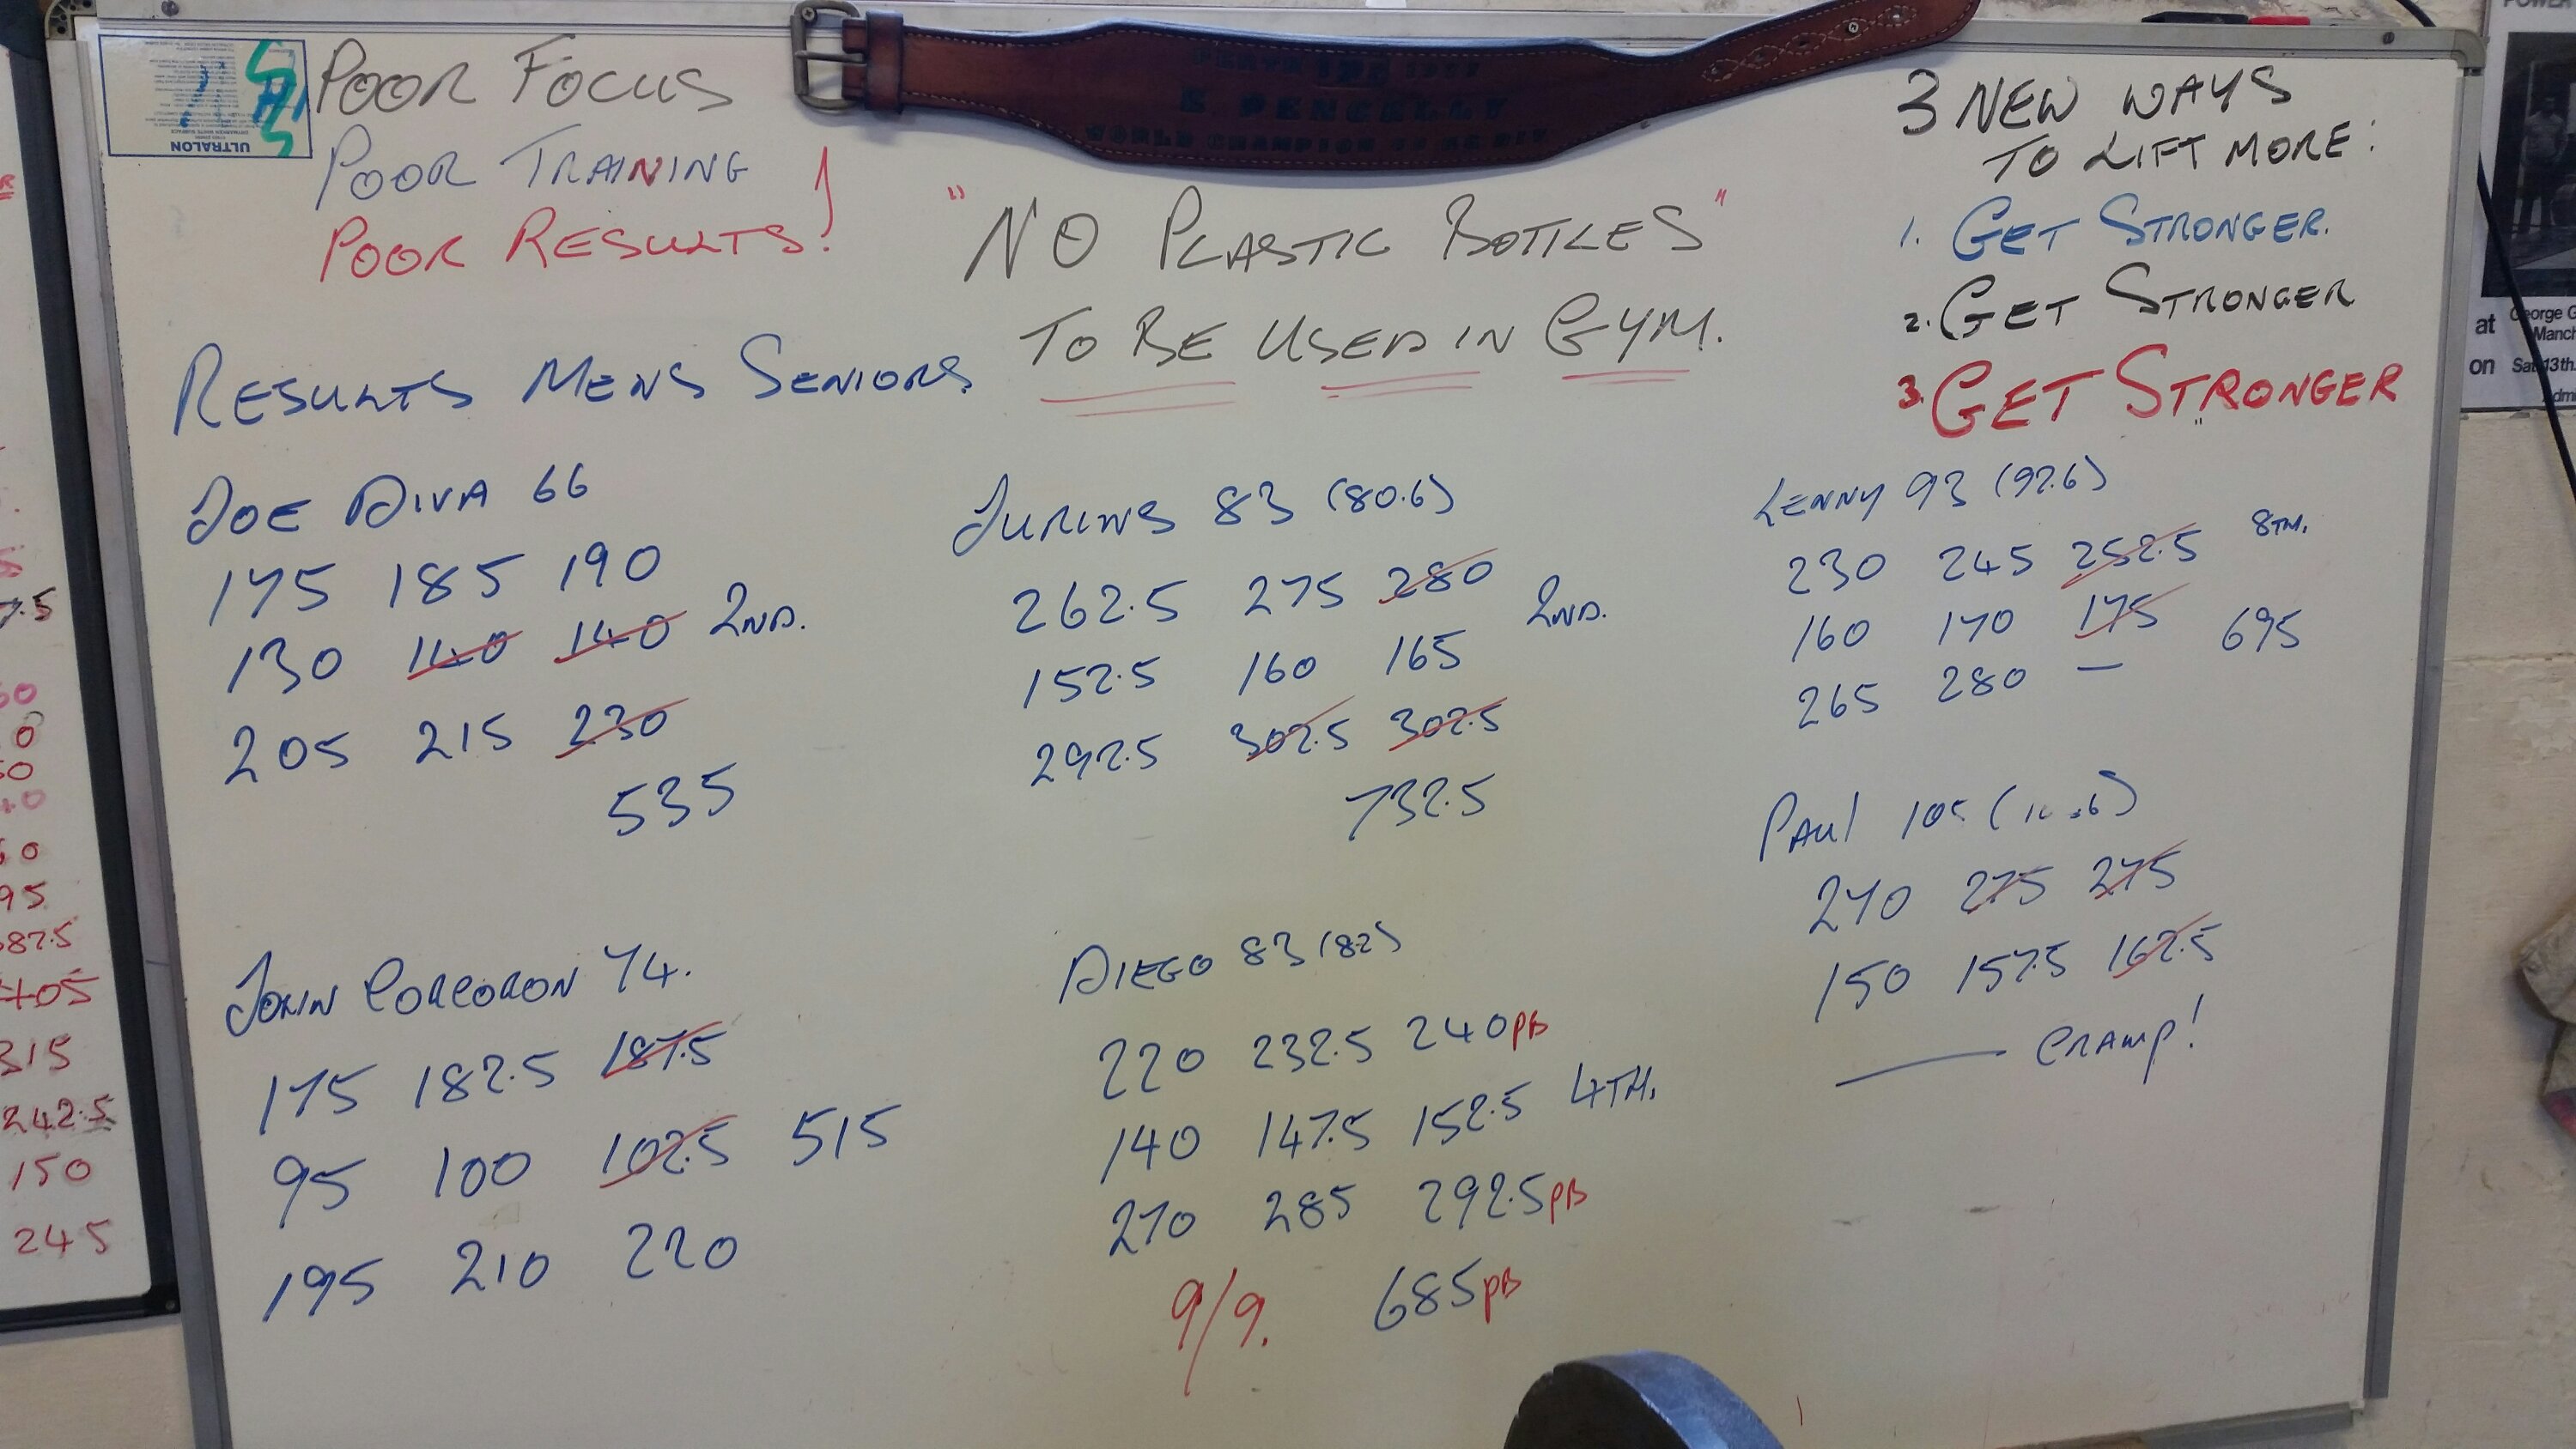 POOR FOCUS
POOR TRAINING
POOR RESULTS!
ULTRALON
"NO PLASTIC BOTTLES"
TO BE USED IN GYM.
3 NEW WAYS
TO LIFT MORE:
1. GET STRONGER.
2. GET STRONGER
3. GET STRONGER
RESULTS MENS SENIORS
JOE DIVA 66
175 185 190
130 140 140 2ND.
205 215 230
535
JOHN CORCORON 74.
175 182.5 187.5
95 100 102.5 515
195 210 220
83 (80.6)
262.5 275 280
2ND.
152.5 160 165
292.5 302.5 302.5
732.5
DIEGO 83 (82)
220 232.5 240PB
140 147.5 152.5 4TH.
270 285 292.5PB
9/9. 685PB
LENNY 93 (92.6)
230 245 252.5 8TH.
160 170 175 695
265 280 —
PAUL
270 275 275
150 157.5 162.5
— CRAMP!
95
315
242.5
150
245
at
on